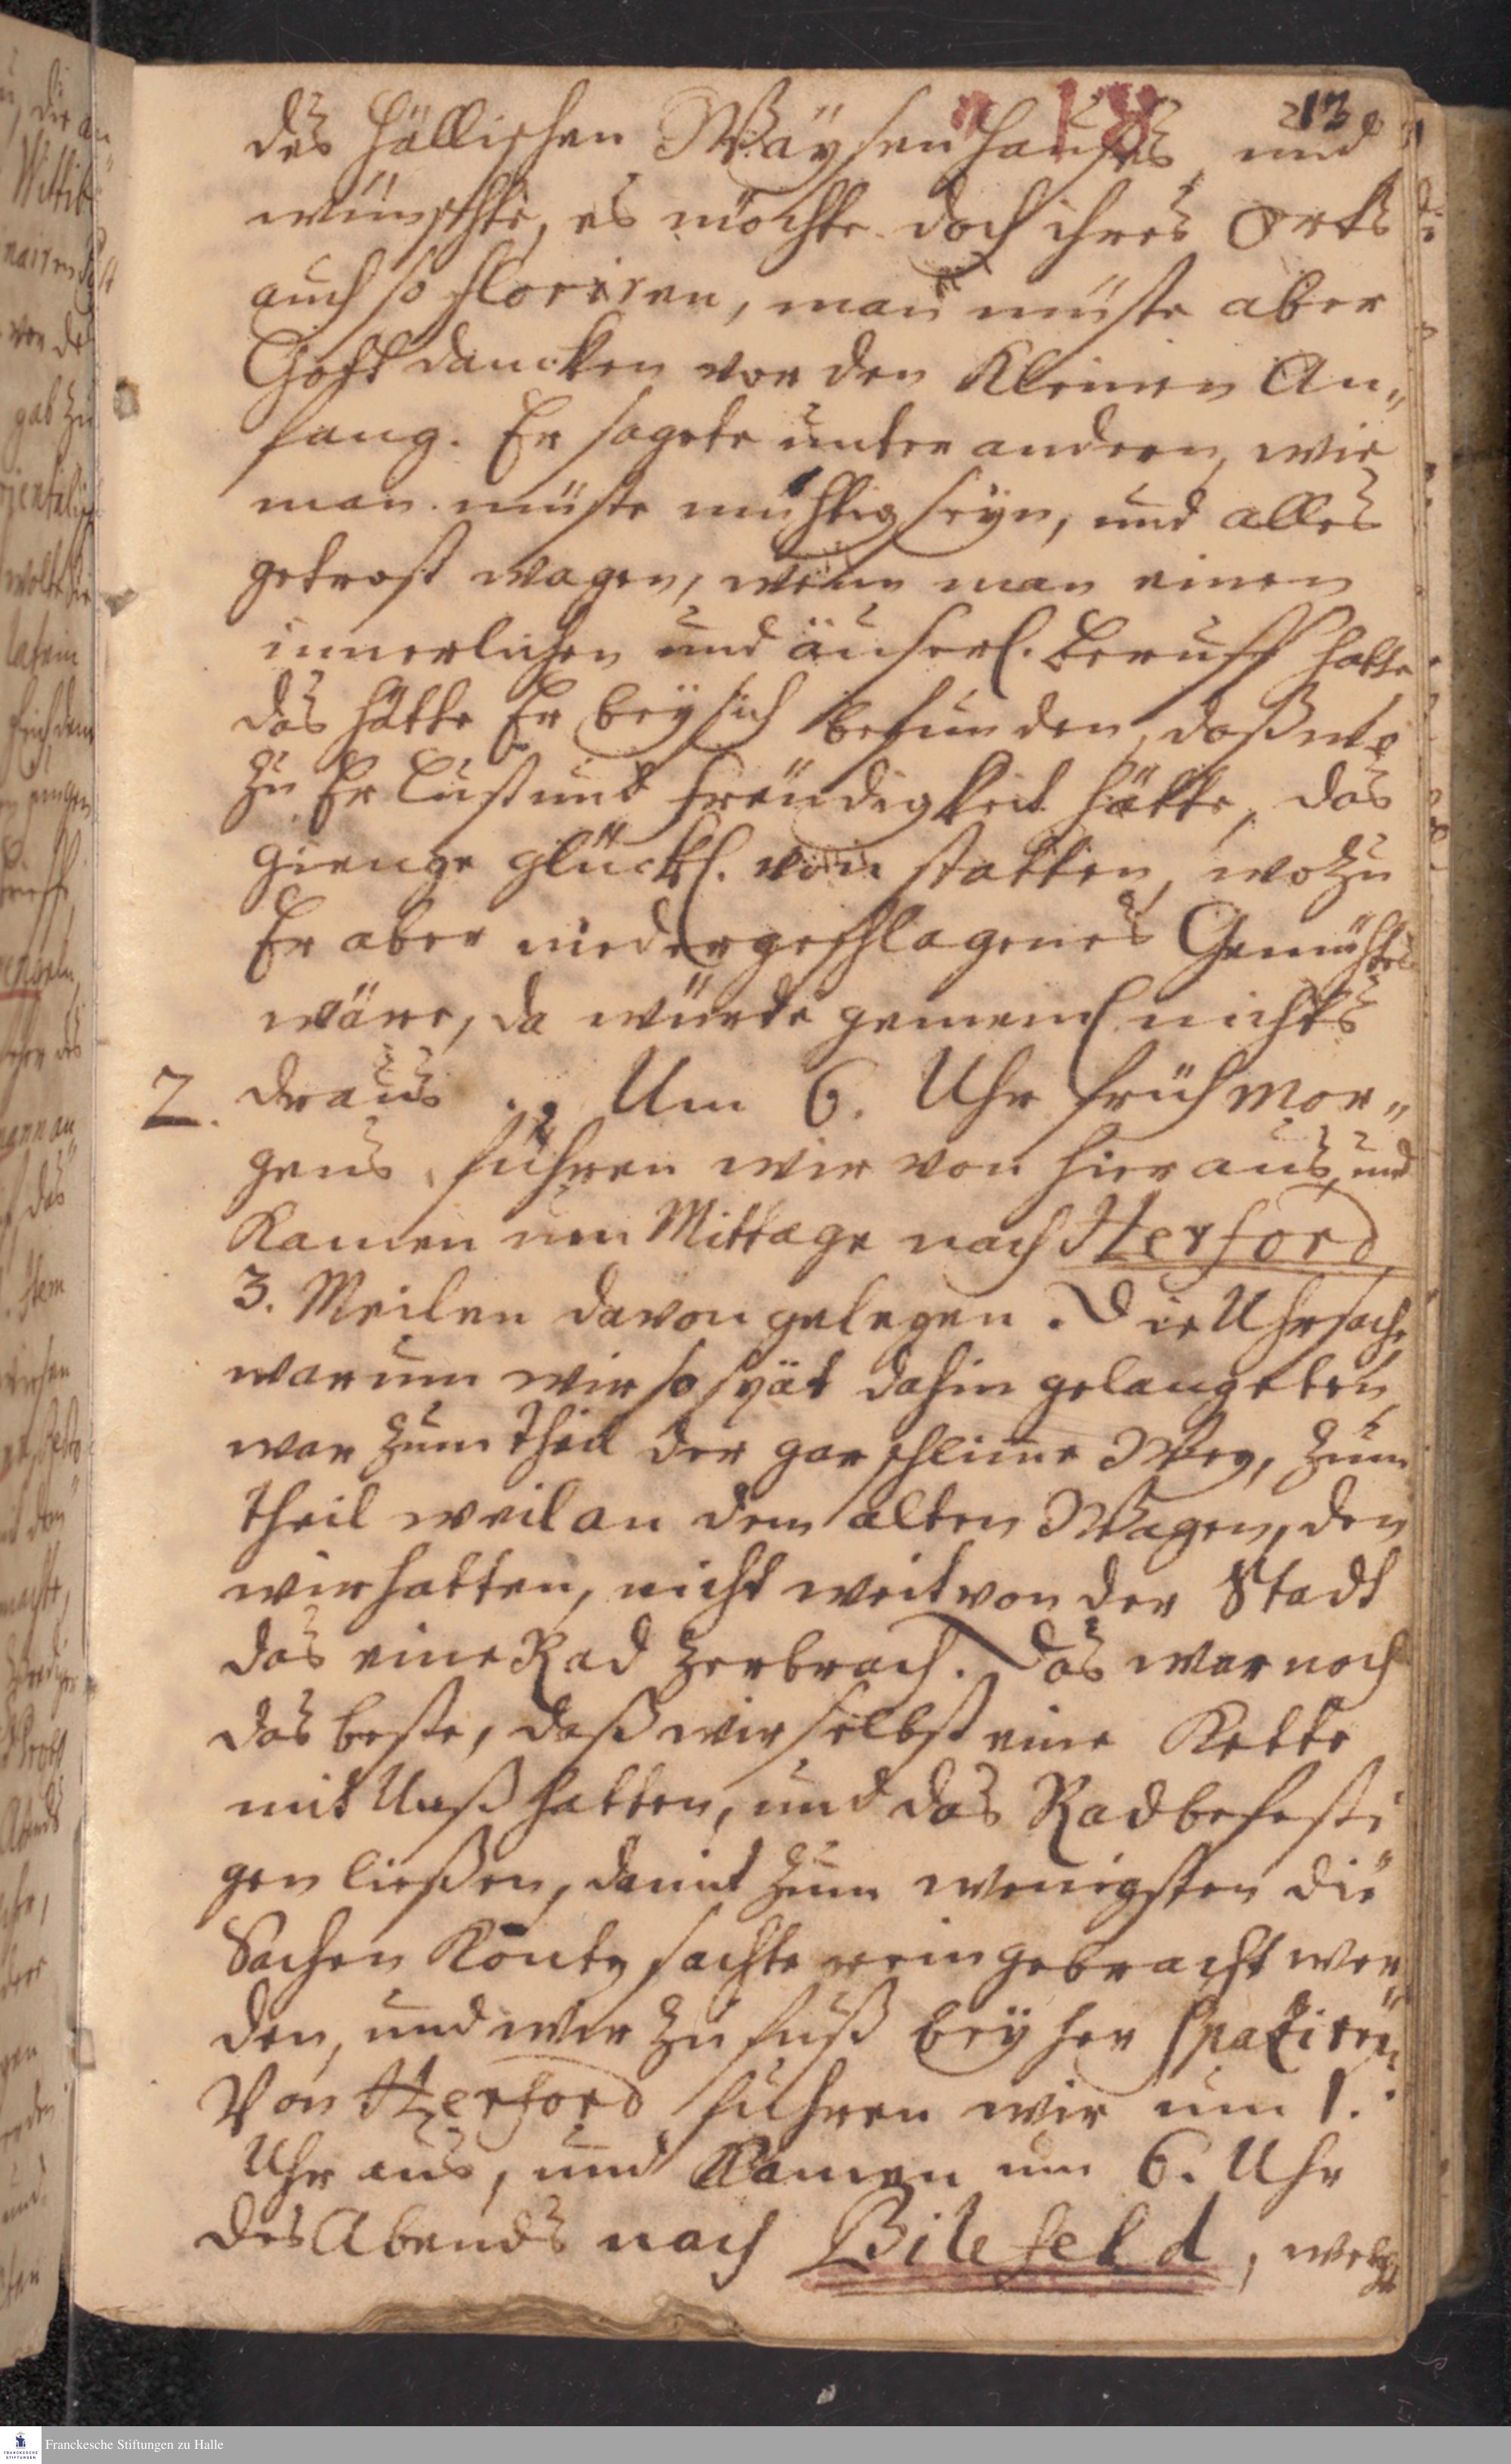 13
18
des Hällischen Wäysenhauses, und
wünschte, es möchte doch ihres Orts
auch so floriren, man müste aber
Gott dancken vor den Kleinen An„
fang. Er sagete unter andern, wie
man müste muhtig seyn, und alles
getrost wagen, wenn man einen
innerlichen und äuserl. Beruff hätte
das hätte Er bey sich befunden, daß wo
zu Er Lust und Freüdigkeit hätte, das
gienge glückl. von statten, wozu
Er aber niedergeschlagenes Gemühtes
wäre, da würde gemeinl nichts
2. draus. Um 6. Uhr früh mor„
gens, fuhren wir von hier aus, und
Kamen um Mittage nach Herford
3. Meilen davon gelegen. Die Uhrsache
warum wir so spät dahin gelangeten,
war zum theil der gar schlime Weg, zum
theil weil an dem alten Wagen, den
wir hatten, nicht weit von der Stadt
das eine Rad zerbrach. Das war noch
das beste, daß wir selbst eine Kette
mit Unß hatten, und das Rad befesti
gen ließen, damit zum wenigsten die
Sachen Konten sachte reingebracht wer„
den, und wir zu fuß bey her spatziren.
Von Herford fuhren wir um 1.
Uhr aus, und Kamen um 6. Uhr
des Abends nach Bilefeld, welch
Franckesche Stiftungen zu Halle